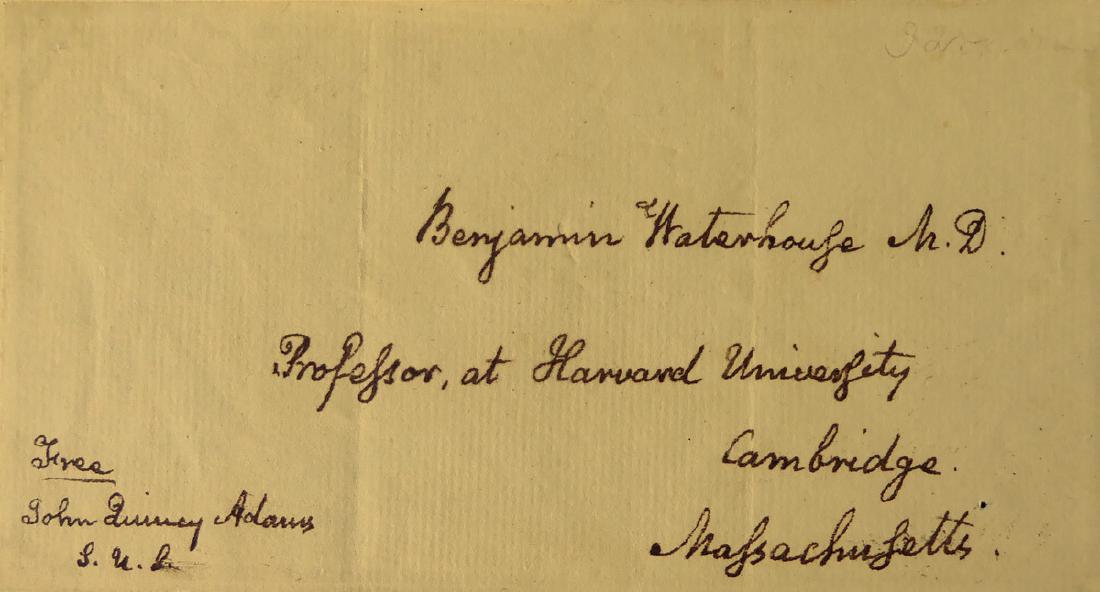 Benjamin Waterhouse M. D.
Professor, at Harvard University
Cambridge.
Massachusetts.
Free
John Quincy Adams
S. U. S.